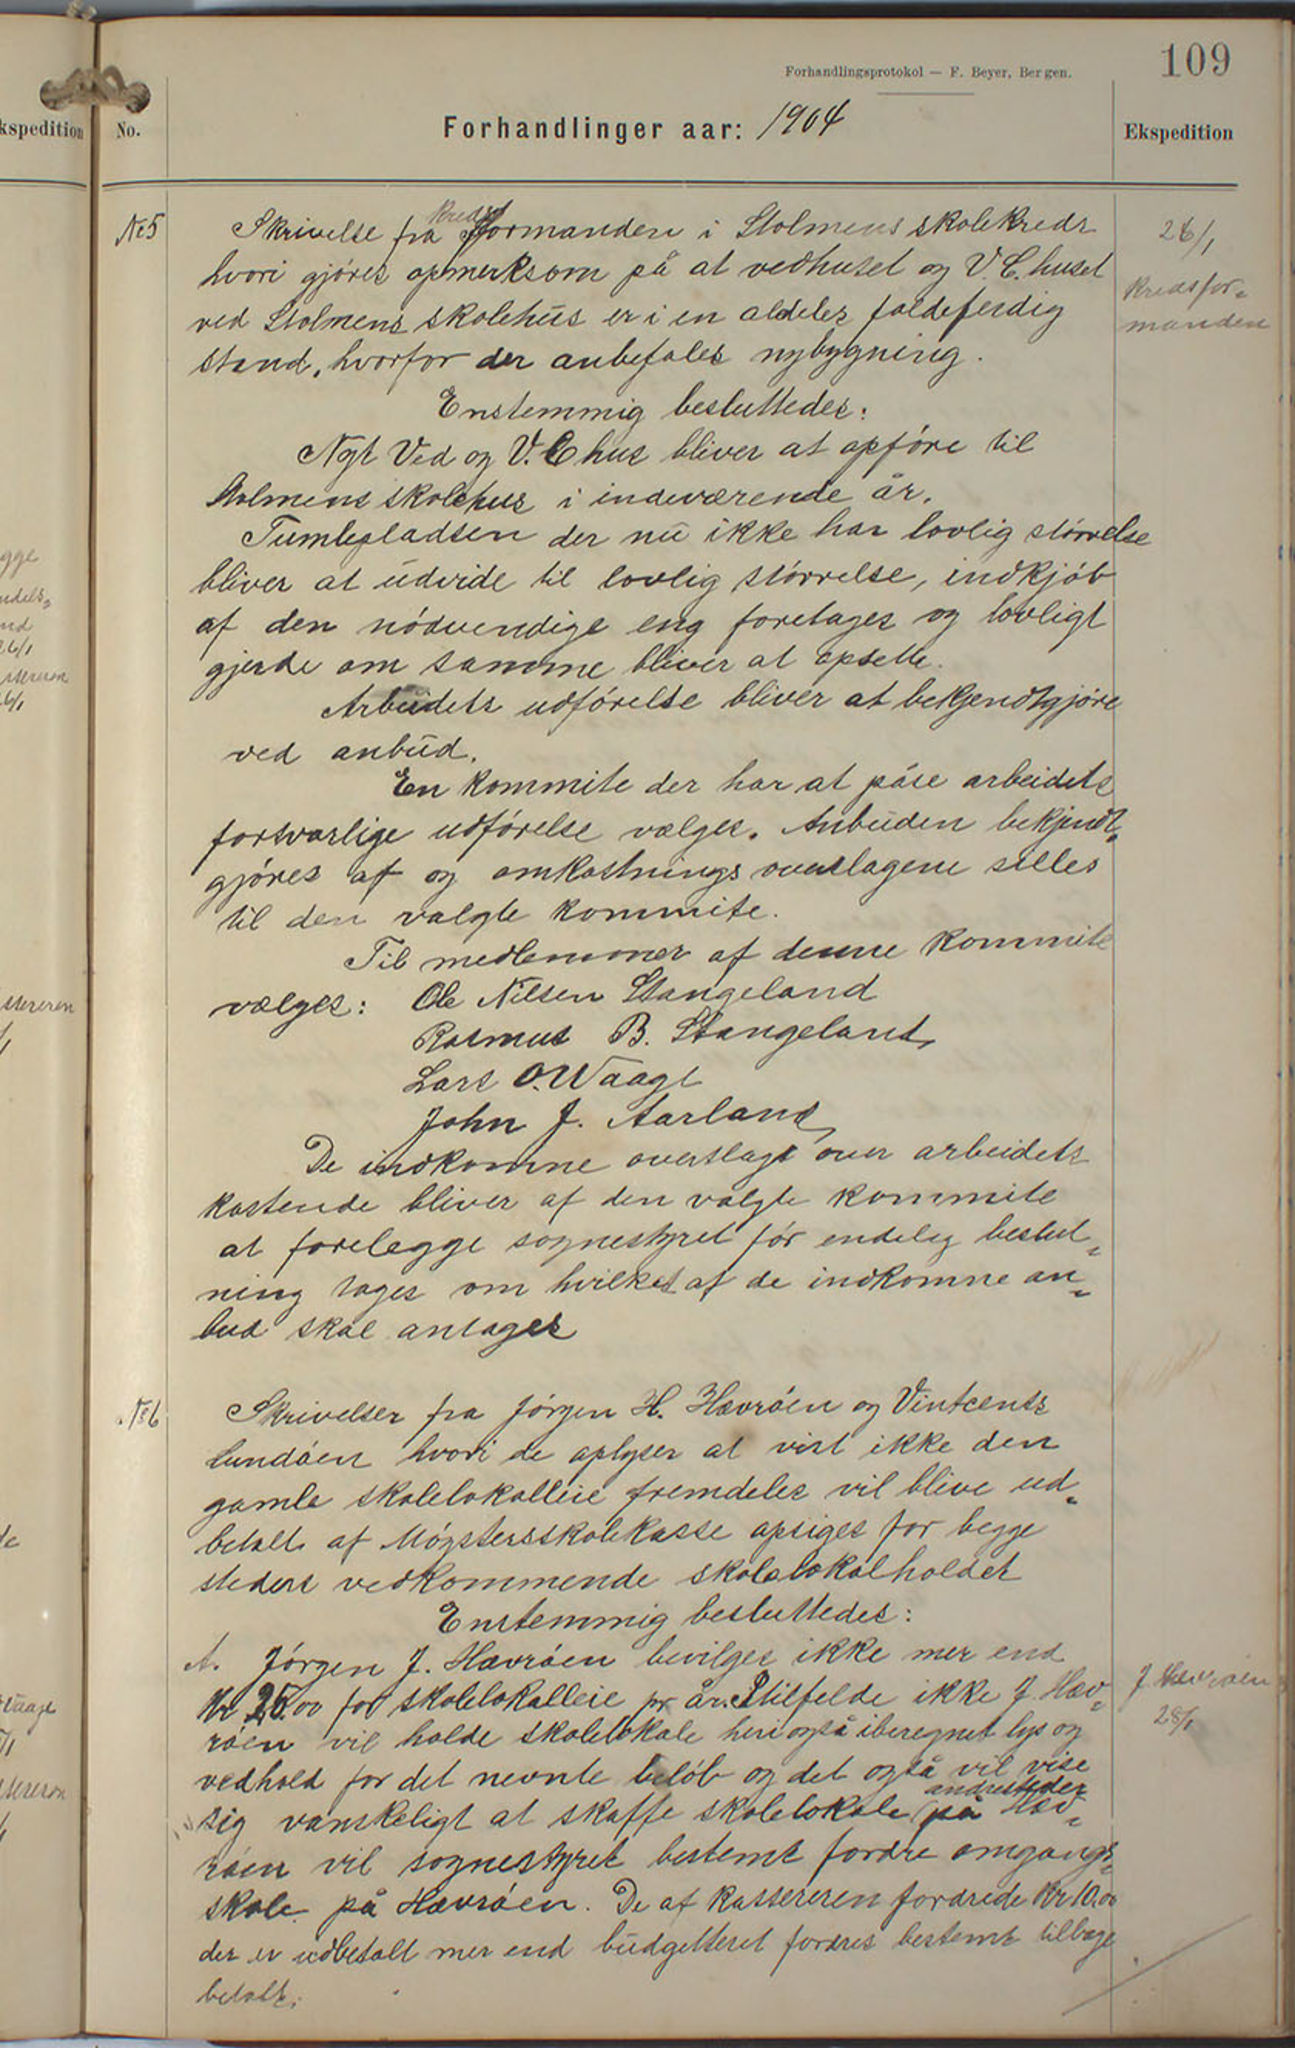 109
Forhandlingsprotokol — F. Beyer, Bergen.
kspedition
No.
Forhandlinger aar: 1904
Ekspedition
No 5
Skrivelse fra kreds formanden i Stolmens skolekreds
hvori gjøres opmerksom på at vedhuset og V.C. huset
ved Stolmens skolehus er i en aldeles faldeferdig
stand, hvorfor der anbefales nybygning.
26/1
Kredsfor-
manden
Enstemmig besluttedes:
Nyt Ved og V.C hus bliver at opføre til
Stolmens skolehus i indeværende år.
Tumlepladsen der nu ikke har lovlig størrelse
bliver at udvide til lovlig størrelse, indkjøb
af den nødvendige eng foretages og lovligt
gjerde om samme bliver at opsette.
Arbeidets udførelse bliver at bekjendtgjøre
ved anbud.
En kommite der har at påse arbeidets
forsvarlige udførelse vælges. Anbuden bekjendt-
gjøres af og omkostnings overslagene stilles
til den valgte kommite.
Til medlemmer af denne kommite
vælges: Ole Nilsen Stangeland
Rasmus B. Stangeland
Lars O. Waage
John J. Aarland
De indkomne overslage over arbeidets
kostende bliver af den valgte kommite
at forelegge sognestyret før endelig beslut-
ning tages om hvilket af de indkomne an-
bud skal antages
No 6
Skrivelser fra Jørgen H. Hævrøen og Vintcents
Lundøen hvori de oplyser at vist ikke den
gamle skolelokalleie fremdeles vil blive ud-
betalt af Møgstersskolekasse opsiges for begge
steders vedkommende skolelokalholdet
Enstemmig besluttedes:
A. Jørgen J. Hævrøen bevilges ikke mer end
Kr 25.00 for skolelokalleie pr år. I tilfelde ikke J. Hæv-
røen vil holde skolelokale heri også iberegnet lys og
vedhold for det nevnte beløb og det også vil vise
sig vanskeligt at skaffe skolelokale andresteder på Hæv-
røen vil sognestyret bestemt fordre omgangs-
skole på Hævrøen. De af kassereren fordrede Kr 10.00
der er udbetalt mer end budgetteret fordres bestemt tilbage
betalt.
J. Hævrøen
28/1